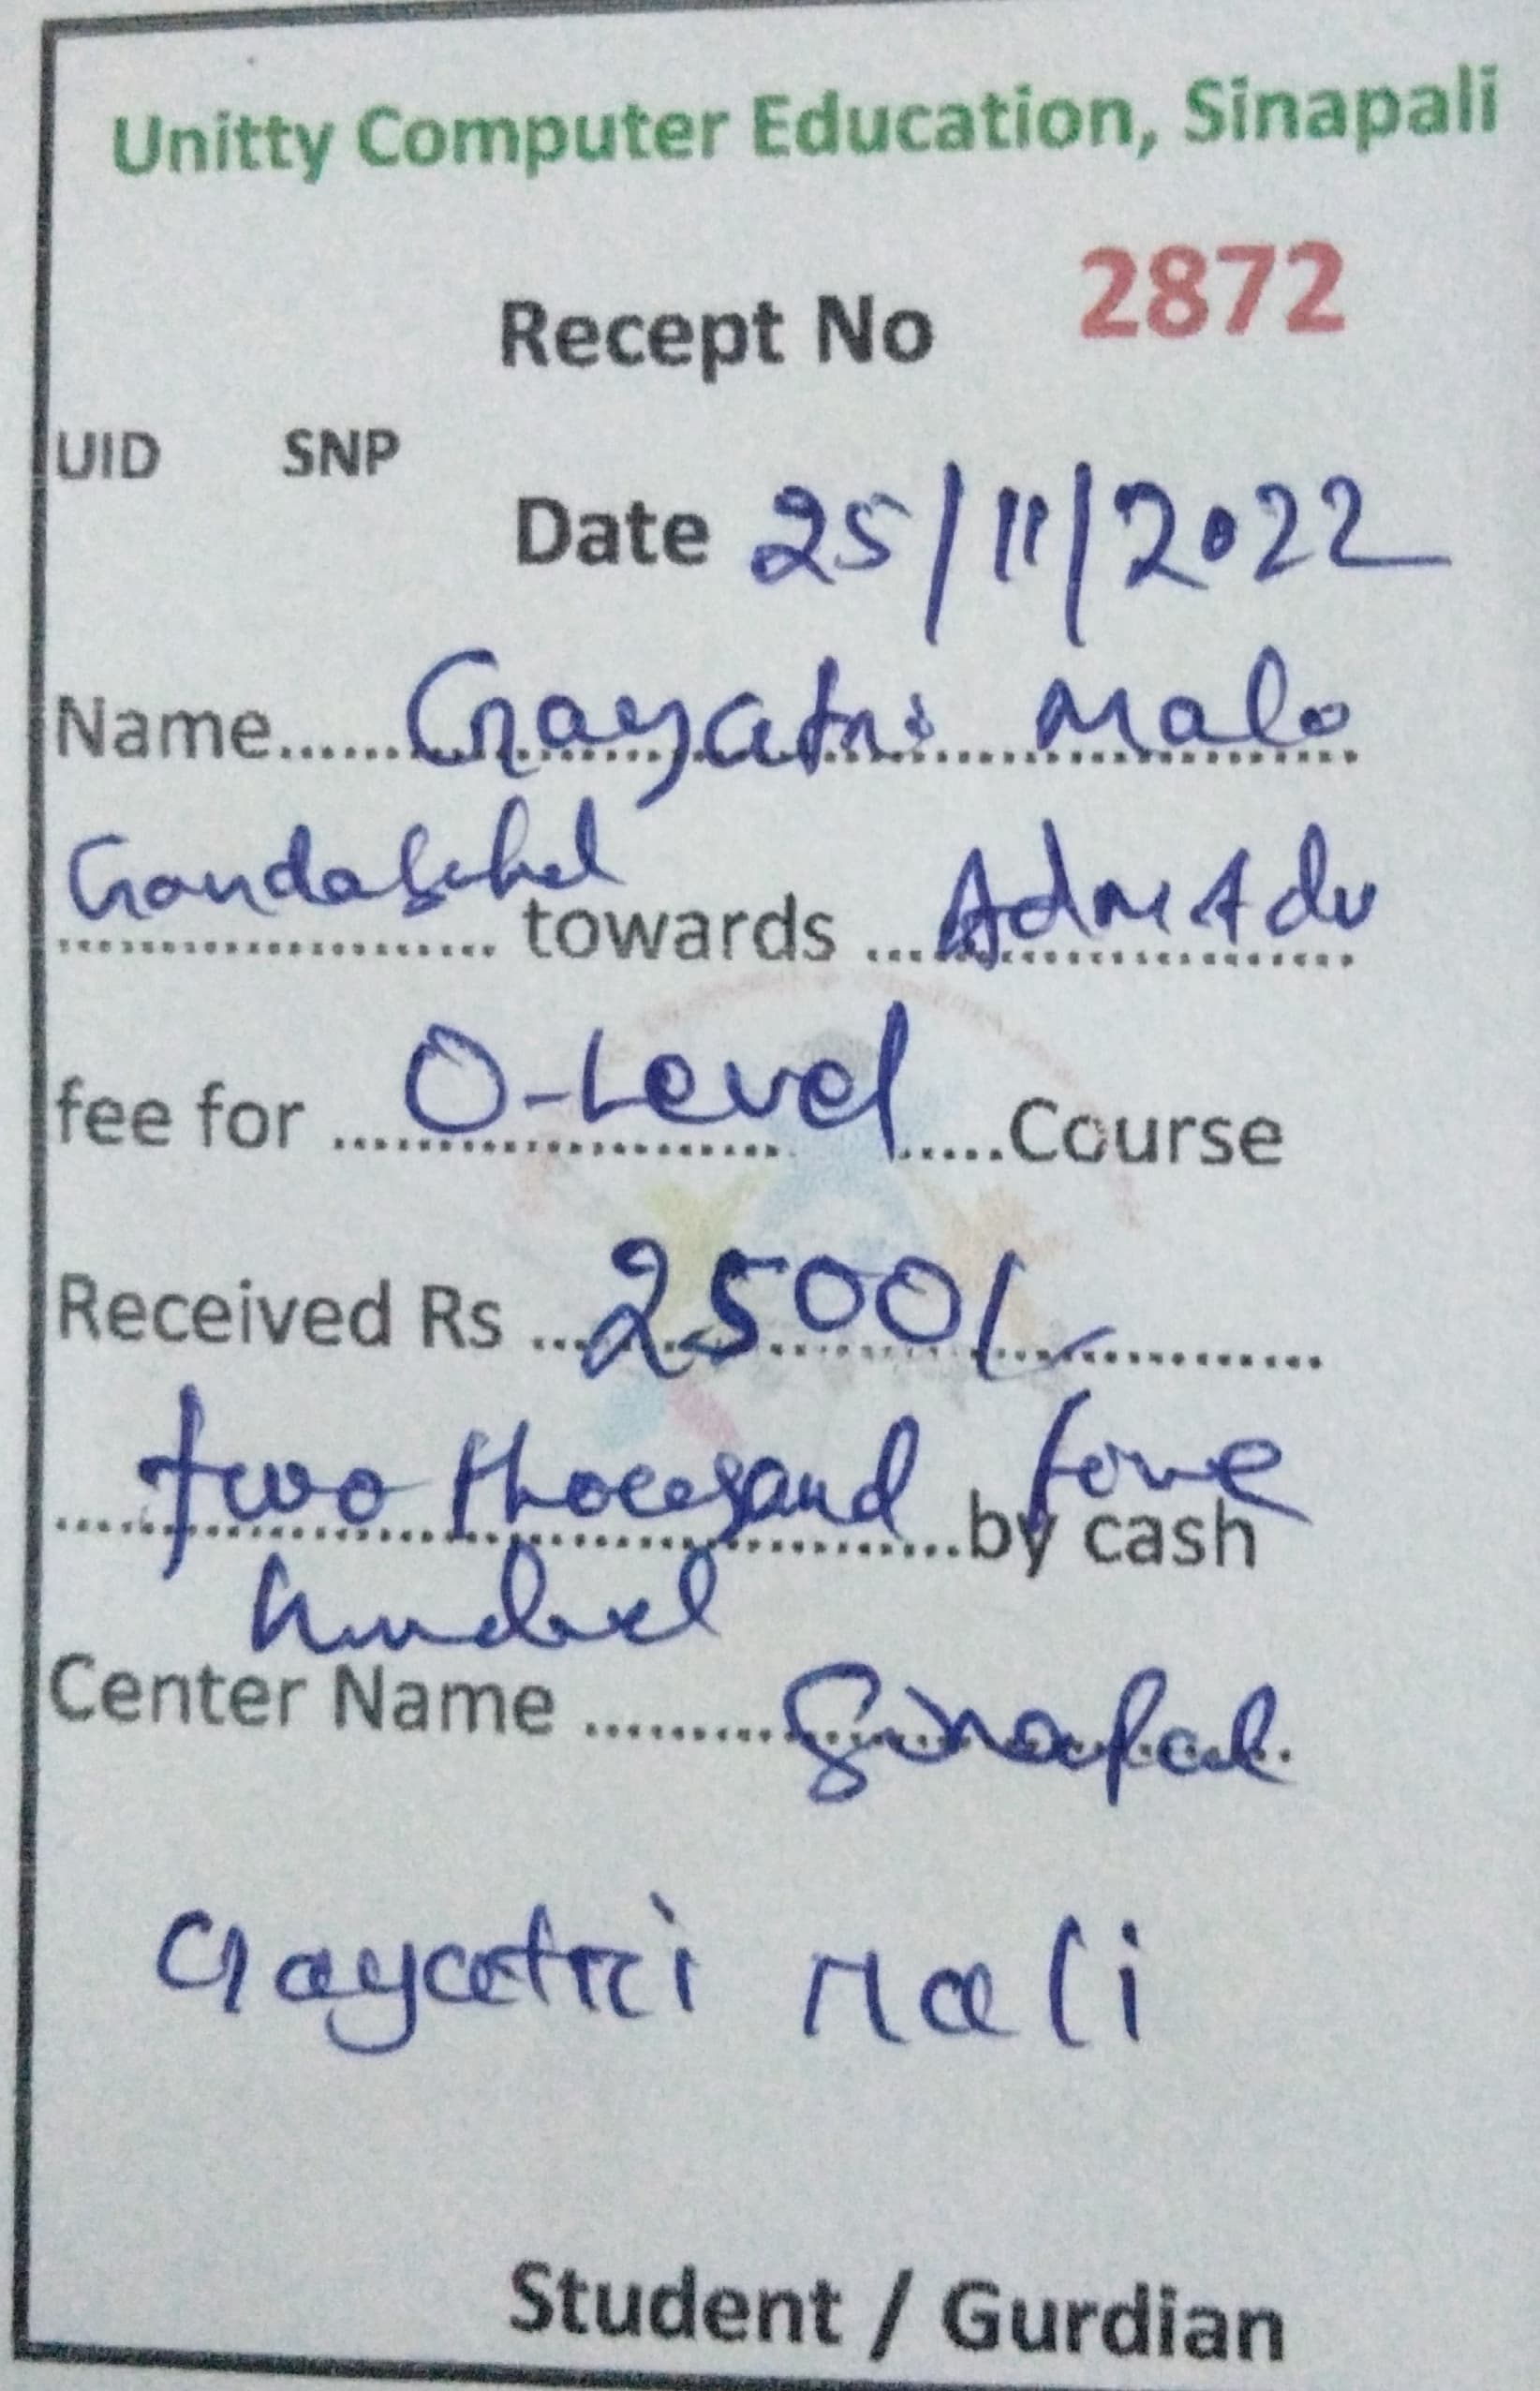 Unitty Computer Education, Sinapali
Recept No 2872
UID SNP
Date 25/11/2022
Name...... Gayatri Mali
............ towards ... Adm Adv
fee for ... O-Level ...Course
Received Rs ... 2500/-
two thousand five by cash
hundred
Center Name ... Sinapali
Gayatri Mali
Student / Gurdian